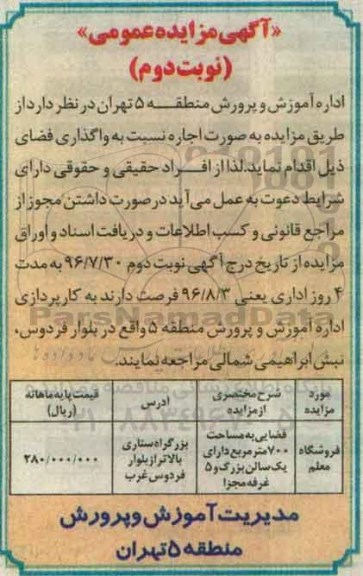 «آگهی مزایده عمومی»
(نوبت دوم)
اداره آموزش و پرورش منطقه ۵ تهران در نظر دارد از
طریق مزایده به صورت اجاره نسبت به واگذاری فضای
ذیل اقدام نماید. لذا از افراد حقیقی و حقوقی دارای
شرایط دعوت به عمل می آید در صورت داشتن مجوز از
مراجع قانونی و کسب اطلاعات و دریافت اسناد و اوراق
مزایده از تاریخ درج آگهی نوبت دوم ۹۶/۷/۳۰ به مدت
۴ روز اداری یعنی ۹۶/۸/۳ فرصت دارند به کارپردازی
اداره آموزش و پرورش منطقه ۵ واقع در بلوار فردوس،
نبش ابراهیمی شمالی مراجعه نمایند.
مورد مزایده | شرح مختصری از مزایده | آدرس | قیمت پایه ماهانه (ریال)
فروشگاه معلم | فضایی به مساحت ۷۰۰ متر مربع دارای یک سالن بزرگ و ۵ غرفه مجزا | بزرگراه ستاری بالاتر از بلوار فردوس غرب | ۲۸۰/۰۰۰/۰۰۰
مدیریت آموزش و پرورش
منطقه ۵ تهران
ParsNamadData